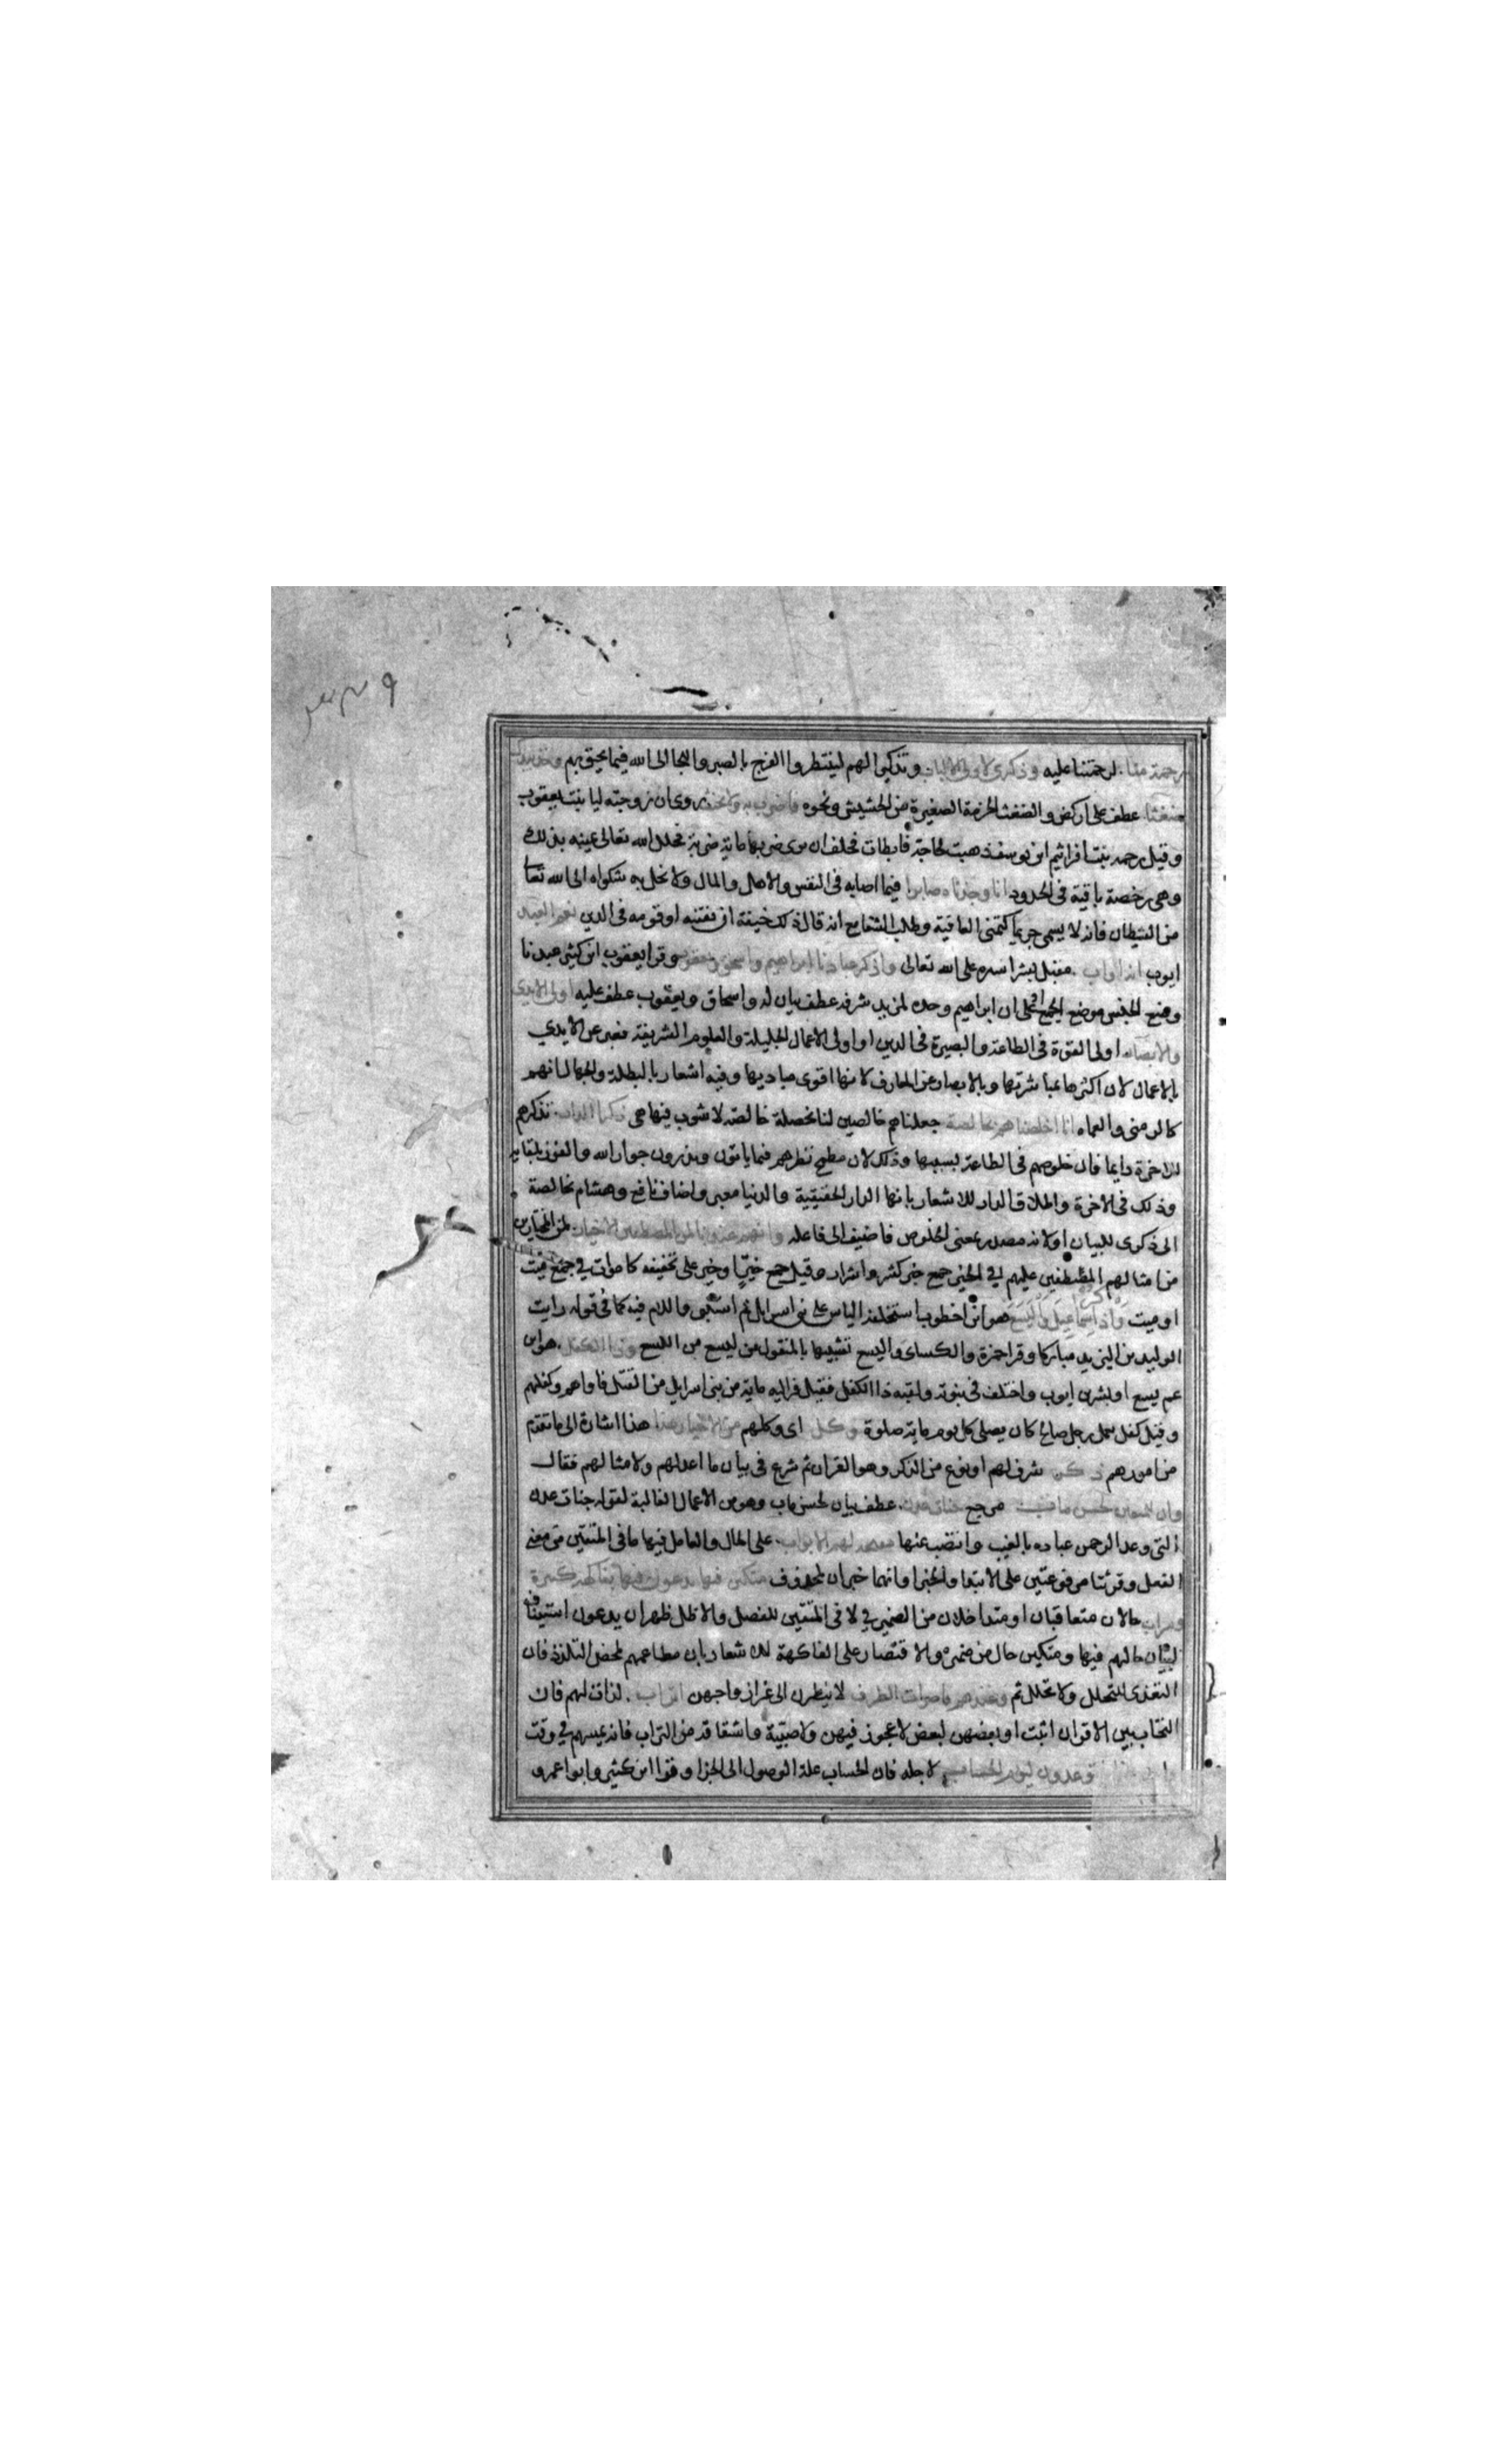 رحمة منا لرحمتنا عليه وذكرى لاولى الالباب وتذكيرا لهم لينتظروا الفرج بالصبر والتجا الى الله فيما يحيق بهم وخذ بيدك
ضغثا عطف على اركض والضغث الحزمة الصغيرة من الحشيش ونحوه فاضرب به ولا تحنث روى ان زوجته ليا بنت يعقوب
وقيل رحمه بنت افراثيم ابن يوسف ذهبت لحاجة فابطات فحلف ان برى ضربها ماية ضربة فحلل الله تعالى عينه بذلك
وهى رخصة باقية فى الحدود انا وجدناه صابرا فيما اصابه فى النفس والاهل والمال ولا تحل به شكواه الى الله تعا
من الشيطان فانه لا يسمى جزعا كتمنى العافية وطلب الشفا مع انه قال ذلك خيفة ان يفتنه او قومه فى الدين نعم العبد
ايوب انه اواب مقبل بشراشره على الله تعالى واذكر عبادنا ابراهيم واسحق ويعقوب وقرا يعقوب ابن كثير عبدنا
وضع الجنس موضع الجمع او على ان ابراهيم وحده لمزيد شرفه عطف بيان له واسحاق ويعقوب عطف عليه اولى الايدى
والابصار اولى القوة فى الطاعة والبصيرة فى الدين او اولى الاعمال الجليلة والعلوم الشريفة فعبر عن الايدي
بالاعمال لان اكثرها بمباشرتها وبالابصار عن المعارف لانها اقوى مباديها وفيه اشعار بالبطلة والجهال انهم
كالزمنى والعماه انا اخلصناهم بخالصة جعلناهم خالصين لنا بخصلة خالصه لا شوب فيها هى ذكرى الدار تذكرهم
للاخرة دايما فان خلوصهم فى الطاعة بسببها وذلك لان مطمح نظرهم فيما ياتون ويذرون جوار الله والفوز بلقايه
وذلك فى الاخرة واطلاق الدار للاشعار بانها الدار الحقيقية والدنيا معبر واضاف نافع وهشام بخالصة
الى ذكرى للبيان او لانه مصدر بمعنى الخلوص فاضيف الى فاعله وانهم عندنا لمن المصطفين الاخيار لمن المختارين
من امثالهم المصطفين عليهم في الخير جمع خير كشر واشرار وقيل جمع خير او خير على تخفيفه كاموات في جمع ميت
او ميت واذكر اسماعيل واليسع هو ابن اخطوب استخلفه الياس على بنى اسرايل ثم استنبى واللام فيه كما فى قوله رايت
الوليد بن اليزيد مباركا وقرا حمزة والكساى واليسع تشبيها بالمنقول من ليسع من اللسع وذا الكفل هو ابن
عم يسع او بشر بن ايوب واختلف فى نبوته ولقبه ذا الكفل فقيل فر اليه ماية من بنى اسرايل من القتل فاواهم وكفلهم
وقيل كفل بعمل رجل صالح كان يصلى كل يوم ماية صلوة وكل اى وكلهم من الاخيار هذا هذا اشارة الى ما تقدم
من امورهم ذكر شرف لهم او نوع من الذكر وهو القران ثم شرع فى بيان ما اعد لهم ولامثالهم فقال
وان للمتقين لحسن ماب مرجع جنات عدن عطف بيان لحسن ماب وهو من الاعمال الغالبة لقوله جنات عدن
التى وعد الرحمن عباده بالغيب وانتصب عنها مفتحة لهم الابواب على الحال والعامل فيها ما فى المتقين من معنى
الفعل وقرئتا مرفوعتين على الابتدا والخبر او انهما خبران لمحذوف متكئين فيها يدعون فيها بفاكهة كثيرة
وشراب حالان متعاقبان او متداخلان من الضمير في لا فى المتقين للفصل والاظهر ان يدعون استيناف
لبيان حالهم فيها ومتكين حال من ضميره والاقتصار على الفاكهة للاشعار بان مطاعمهم لمحض التلذذ فان
التغذى للتحلل ولا تحلل ثم وعندهم قاصرات الطرف لا ينظرن الى غير ازواجهن اتراب لذات لهم فان
التحاب بين الاقران اثبت او بعضهن لبعض لا عجوز فيهن ولا صبية واشتقاقه من التراب فانه يمسهم في وقت
توعدون ليوم الحساب لاجله فان الحساب علة الوصول الى الجزا وقرا ابن كثير وابوا عمرو